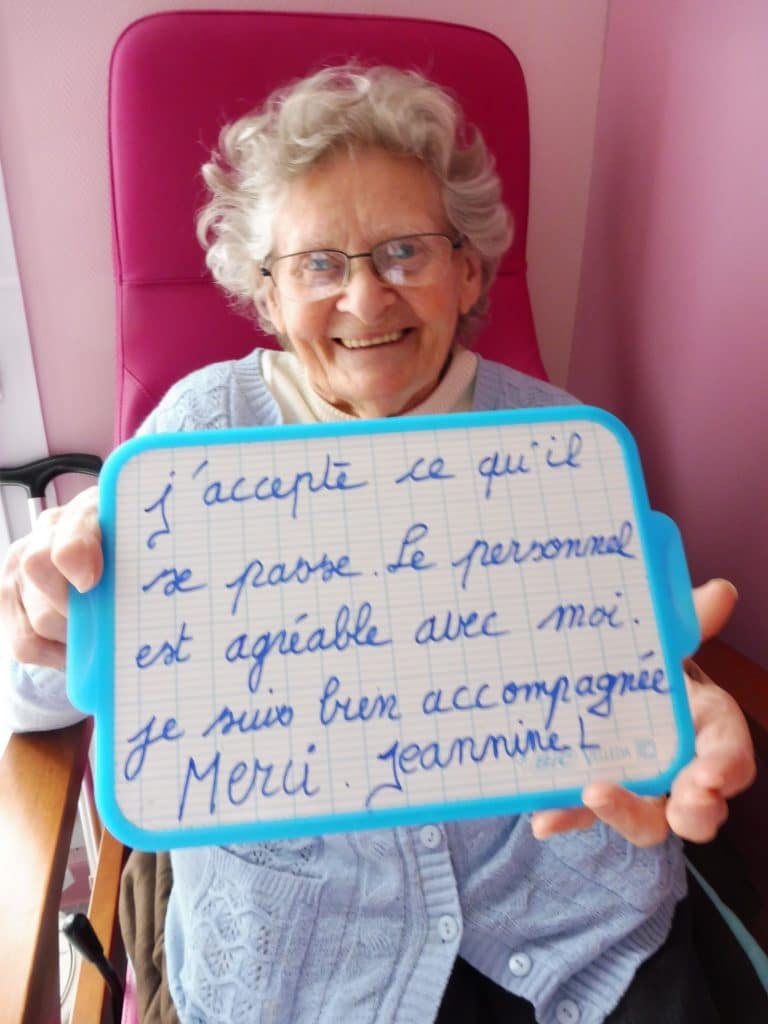 j'accepte ce qu'il
se passe. Le personnel
est agréable avec moi.
je suis bien accompagnée
Merci. Jeannine L